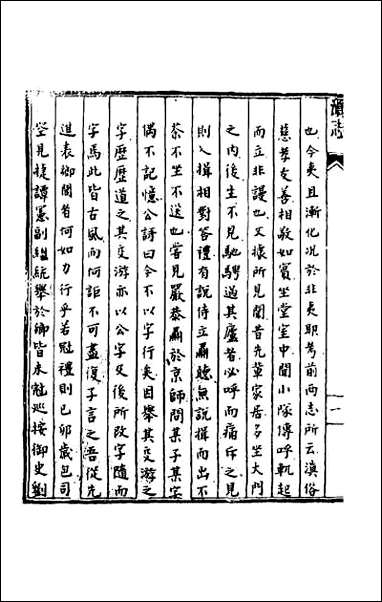 續志
一
也今夷且漸化况於非夷耶考前西志所云滇俗
慈孝友善相敬如賓坐堂室中聞小隊傳呼軏起
而立非謾也又據所見聞昔先輩家居多坐大門
之内後生不見馳騁過其廬者必呼而痛斥之見
則入揖相對答禮有說侍立聽無說揖而出不
茶不坐不送也嘗見嚴恭肅於京師問某子某字
偶不記憶公誶曰今不以字行矣因舉其交游之
字歷歷道之其交游亦以公字又後所改字隨而
字焉此皆古風而何詎不可盡復子言之吾從先
進表鄉閭者何如力行乎若冠禮則已卯歲包司
空見捷譚憲副繼統舉於鄉皆未冠巡按御史劉